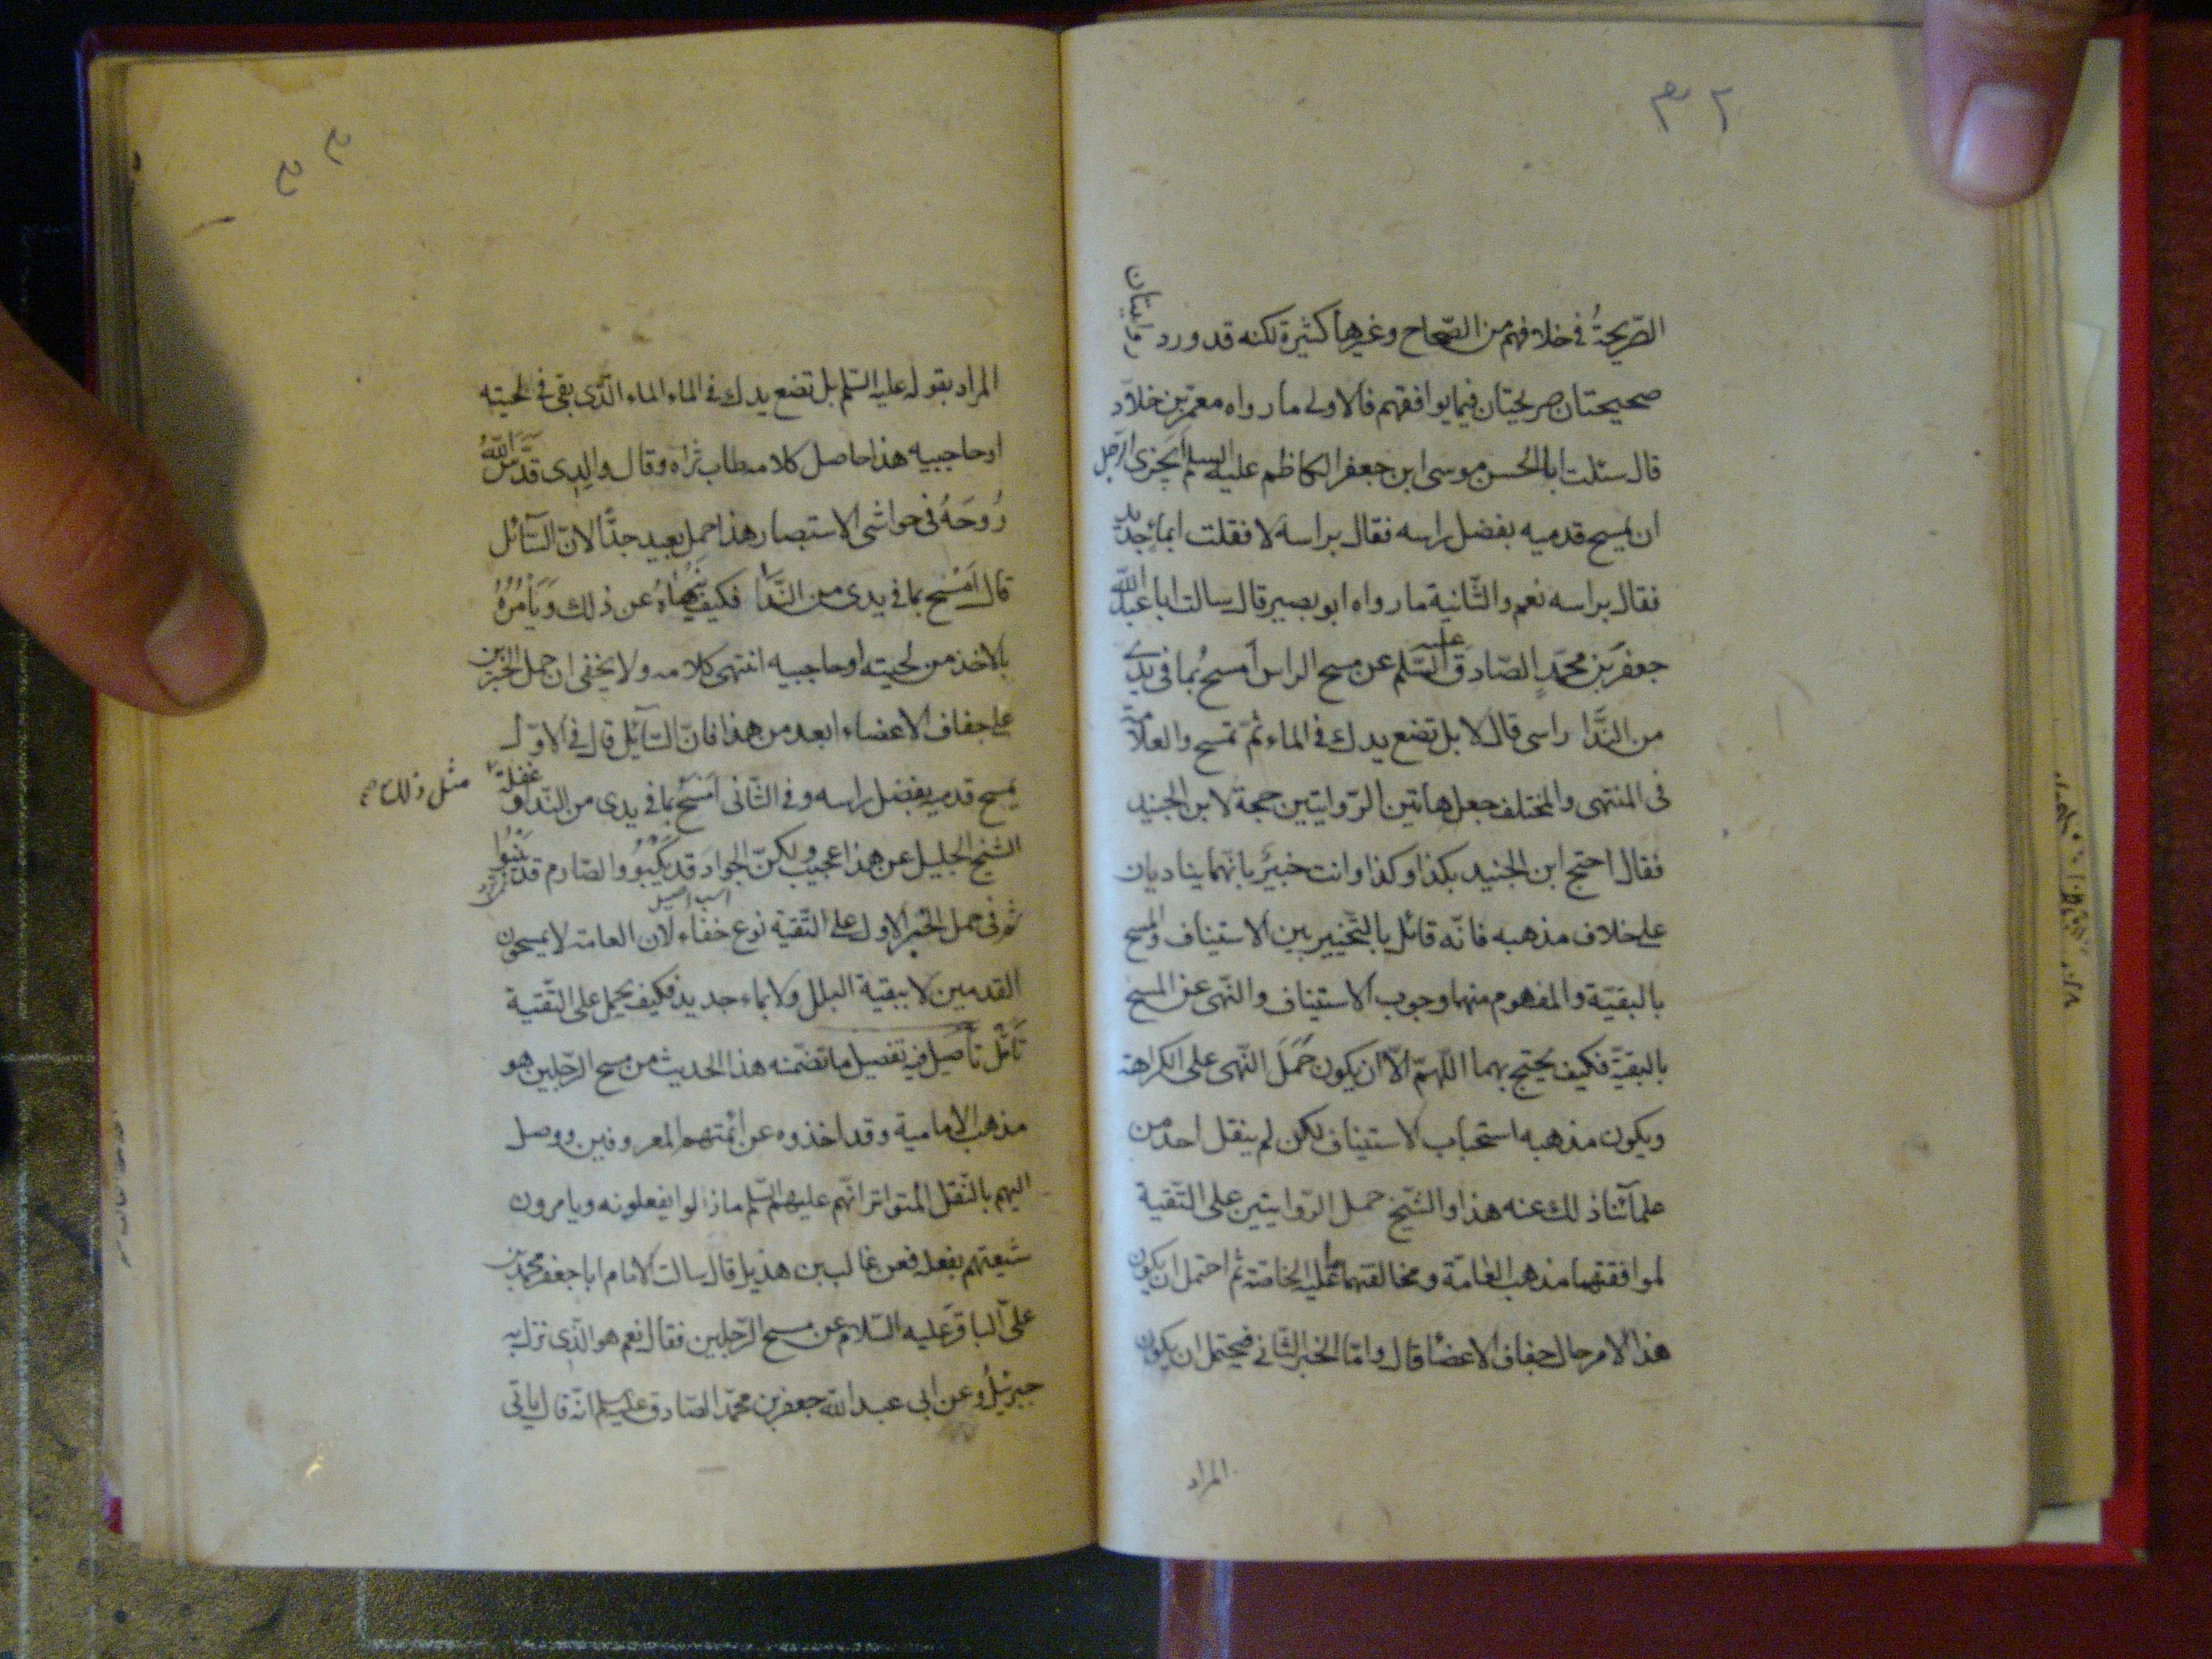 الصّريحةُ في خلافهم من الصّحاح وغيرها كثيرة لكنه قد ورد روايتان
صحيحتان صريحتان فيما يوافقهم فالاولى ما رواه معمّر بن خلاّد
قال سئلت ابا الحسن موسى ابن جعفر الكاظم عليه السلم ايجزى الرّجل
ان يمسح قدميه بفضل راسه فقال براسه لا فقلت ابماءٍ جديد
فقال براسه نعم والثّانية ما رواه ابو بصير قال سالت ابا عبد الله
جعفر بن محمّدٍ الصّادق عليه السّلم عن مسح الراس امسح بما في يدى
من النَّدا راسى قال لا بل تضع يدك في الماء ثمّ تمسح والعلاّمة
فى المنتهى والمختلف جعل هاتين الرّوايتين حجة لابن الجنيد
فقال احتج ابن الجنيد بكذا وكذا وانت خبير بانّهما يناديان
على خلاف مذهبه فانّه قائل بالتّخيير بين الاستيناف والمسح
بالبقيّة والمفهوم منهما وجوب الاستيناف والنّهى عن المسح
بالبقيّة فكيف يحتج بهما اللّهمّ الاّ ان يكون حَمَلَ النّهى على الكراهة
ويكون مذهبه استحباب الاستيناف لكن لم ينقل احد من
علمائنا ذلك عنه هذا والشّيخ حمل الرّوايتين على التّقية
لموافقتهما مذهب العامّة ومخالفتهما ما عليه الخاصّة ثم احتمل ان يكون
هذا الامر حال جفاف الاعضا قال وامّا الخبر الثّانى فيحتمل ان يكون
المراد
المراد بقوله عليه السّلم بل تضع يدك في الماء الماء الّذى بقى في لحيته
او حاجبيه هذا حاصل كلامه طاب ثراه وقال والدى قدّس اللّه
رُوحَهُ فى حواشى الاستبصار هذا حمل بعيد جدًّا لانّ السّائل
قال اَمْسَح بما في يدى من النَّدا فكيف ينهاهُ عن ذلك ويَأْمُرُهُ
بالاخذ من لحيته او حاجبيه انتهى كلامه ولا يخفى ان حمل الخبرين
على جفاف الاعضاء ابعد من هذا فانّ السّائل قال فى الاوّل
يمسح قدميه بفضل راسه وفى الثّانى اَمْسَحُ بما في يدى من النّدا وغفلة
مثل ذلك صح
الشيخ الجليل عن هذا عجيب ولكنّ الجوادَ قد يَكْبُو والصّارم قد يَنْبُوا
اسب اصيل
ثم فى حمل الخبر الاول على التّقية نوع خفاء لان العامة لا يمسحون
القدمين لا ببقية البلل ولا بماء جديد فكيف يحمل على التّقية
تَأَمَّل تأصيل فيه تفصيل ما تضمّنه هذا الحديث من مسح الرّجلين هو
مذهب الامامية وقد اخذوه عن ائمّتهم المعروفين ووصل
اليهم بالنّقل المتواتر انّهم عليهم السّلم ما زالوا يفعلونه ويامرون
شيعتهم بفعله فعن غالب بن هذيل قال سالت الامام ابا جعفر محمّد بن
علىّ الباقر عليه السّلام عن مسح الرّجلين فقال نعم هو الّذى نزل به
جبرئيلُ وعن ابى عبد اللّه جعفر بن محمّد الصّادق عليه السلم انّه قال ياتى